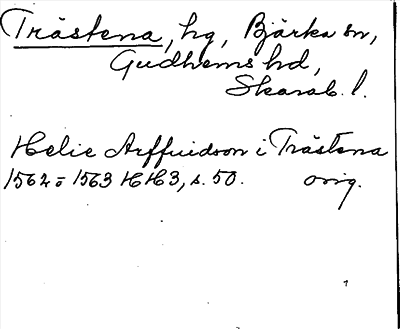 Trästena, hg, Bjärka sn,
Gudhems hd,
Skarab. l.
Helie Arffuidson i Trästena
1562 o 1563 HH3, s. 50. orig.